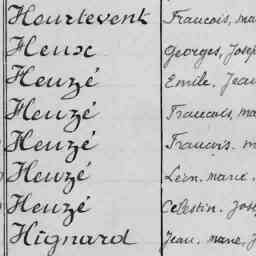 Hourtevent Francois, ma
Heux Georges, Josep
Heuzé Emile, Jean
Heuzé Francois, ma
Heuzé Francois, m
Heuzé Léon, marie,
Heuzé Celestin, Jos
Hignard Jean, marie, J